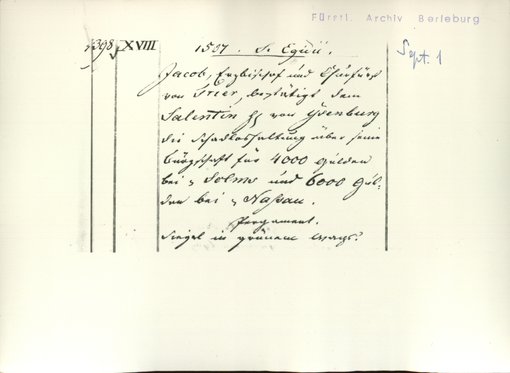 Fürstl. Archiv Berleburg
1398 XVIII 1507. S. Egidii. Sept. 1
Jacob, Erzbischof und Churfürst
von Trier, bestätigt dem
Salentin H. von Isenburg
die Schadloshaltung über seine
Bürgschaft für 4000 Gulden
bei Solms und 6000 Gul-
den bei Naßau.
Pergament.
Siegel in grünem Wachs.